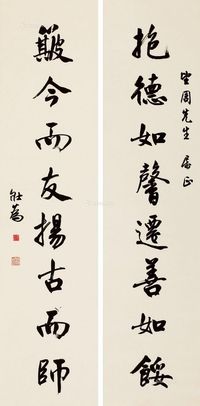 抱德如馨遷善如餒
周先生 屬正
簸今而友揚古而師